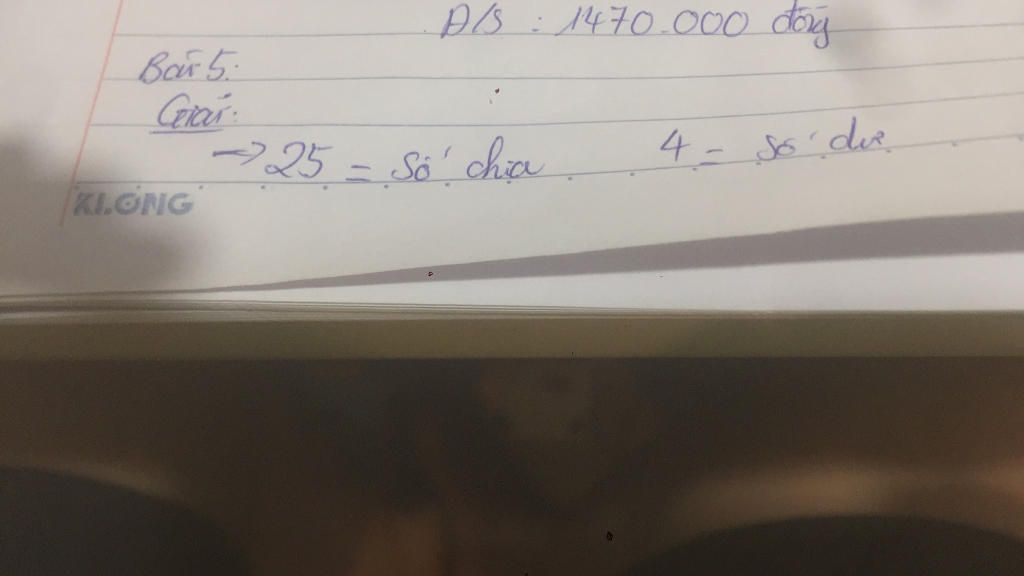 Đ/S : 1470.000 đồng
Bài 5:
Giải:
→ 25 = số chia 4 = số dư
KLONG